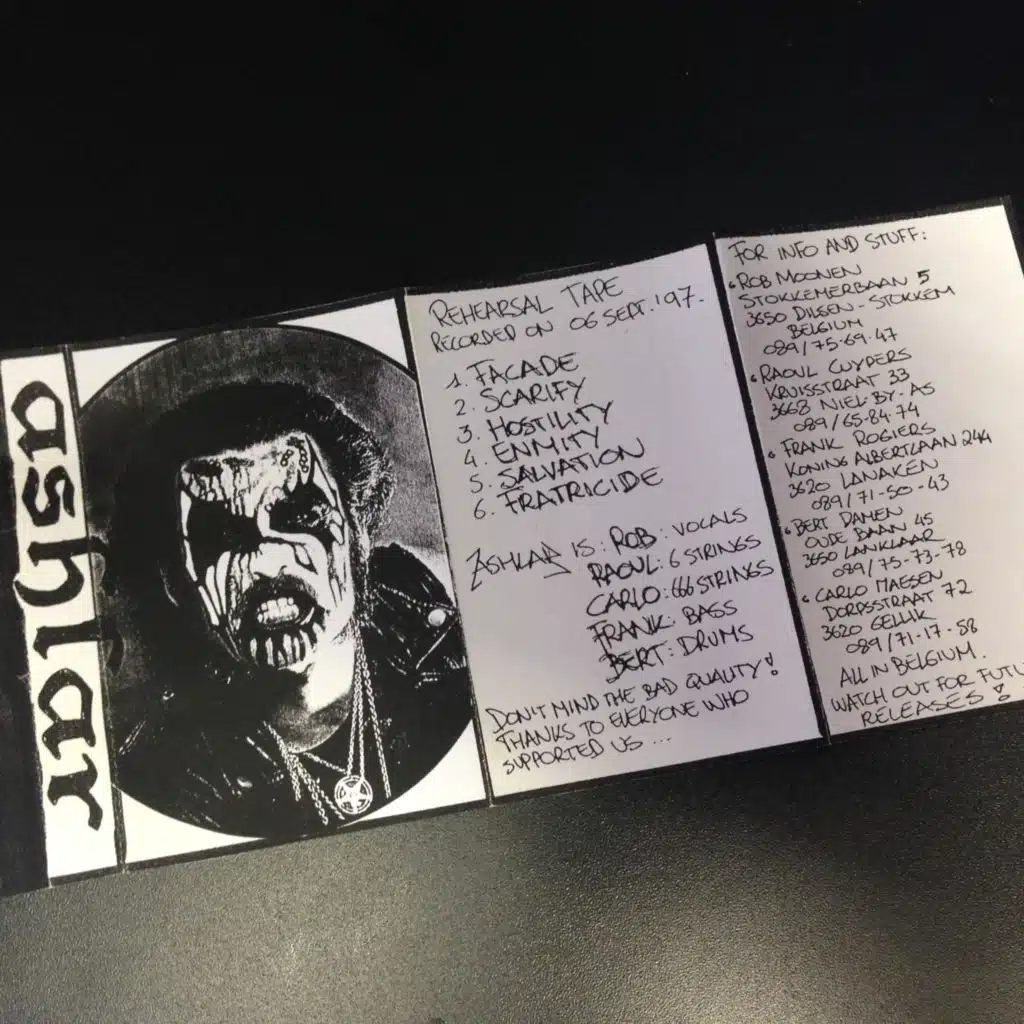 ashlar
REHEARSAL TAPE
RECORDED ON 06 SEPT. '97.
1. FACADE
2. SCARIFY
3. HOSTILITY
4. ENMITY
5. SALVATION
6. FRATRICIDE
ASHLAR IS: ROB: VOCALS
RAOUL: 6 STRINGS
CARLO: 666 STRINGS
FRANK: BASS
BERT: DRUMS
DON'T MIND THE BAD QUALITY!
THANKS TO EVERYONE WHO
SUPPORTED US ...
FOR INFO AND STUFF:
• ROB MOONEN
STOKKEMERBAAN 5
3650 DILSEN - STOKKEM
BELGIUM
089/75-69-47
• RAOUL CUYPERS
KRUISSTRAAT 33
3668 NIEL-BY-AS
089/65-84-74
• FRANK ROGIERS
KONING ALBERTLAAN 244
3620 LANAKEN
089/71-50-43
• BERT DAMEN
OUDE BAAN 45
3650 LANKLAAR
089/75-73-78
• CARLO MAESEN
DORPSSTRAAT 72
3620 GELLIK
089/71-17-58
ALL IN BELGIUM.
WATCH OUT FOR FUTU
RELEASES!